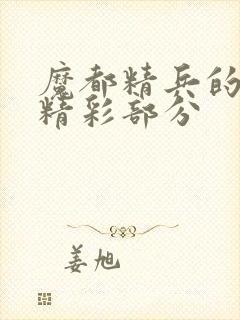 魔都精兵的
精彩部分
姜旭